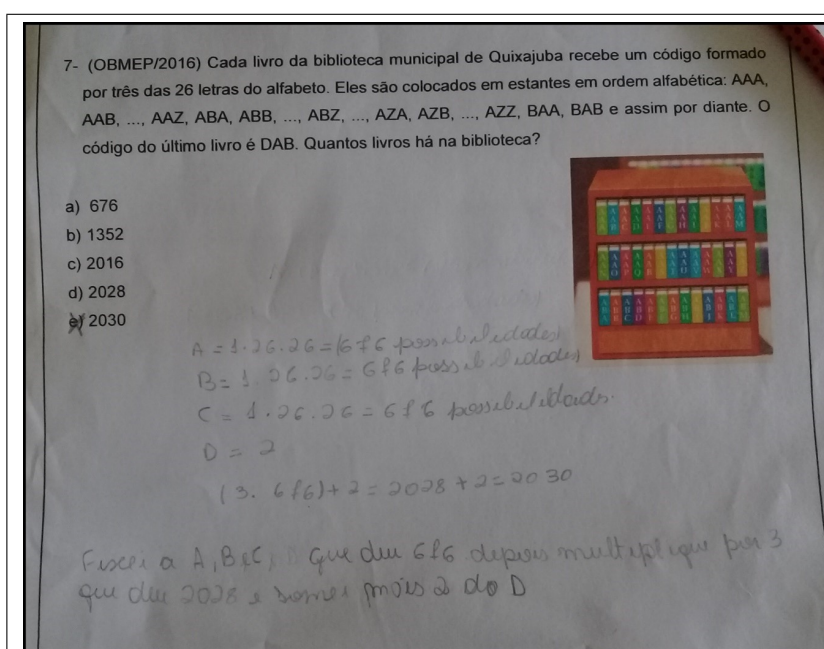 7- (OBMEP/2016) Cada livro da biblioteca municipal de Quixajuba recebe um código formado
por três das 26 letras do alfabeto. Eles são colocados em estantes em ordem alfabética: AAA,
AAB, ..., AAZ, ABA, ABB, ..., ABZ, ..., AZA, AZB, ..., AZZ, BAA, BAB e assim por diante. O
código do último livro é DAB. Quantos livros há na biblioteca?
a) 676
b) 1352
c) 2016
d) 2028
e) 2030
A = 1.26.26 = 676 possibilidades
B = 1.26.26 = 676 possibilidades
C = 1.26.26 = 676 possibilidades.
D = 2
(3. 676)+2 = 2028 + 2 = 2030
a A, B e C, que deu 676 depois multipliquei por 3
que deu 2028 e somei mais 2 do D